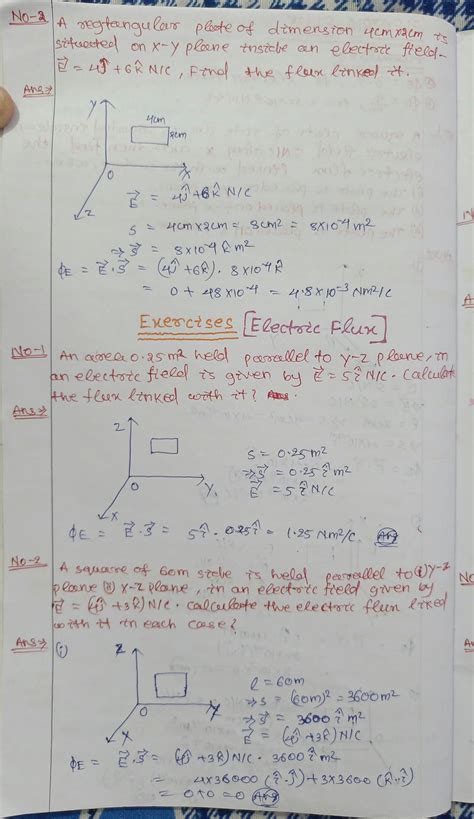 No-2 A rectangular plate of dimension 4cm×2cm is
situated on x-y plane inside an electric field-
E⃗ = 4ĵ + 6k̂ N/C, Find the flux linked it.
Ans:→
Y
4cm
2cm
O
X
Z
E⃗ = 4ĵ + 6k̂ N/C
S = 4cm×2cm = 8cm² = 8×10⁻⁴ m²
⇒ S⃗ = 8×10⁻⁴ k̂ m²
ϕE = E⃗.S⃗ = (4ĵ + 6k̂). 8×10⁻⁴ k̂
= 0 + 48×10⁻⁴ = 4.8×10⁻³ Nm²/C
Exercises [Electric Flux]
No-1 An area 0.25m² held parallel to y-z plane, in
an electric field is given by E⃗ = 5î N/C. Calculate
the flux linked with it?
Ans:→
Z
O
Y
X
S = 0.25m²
⇒ S⃗ = 0.25 î m²
E⃗ = 5 î N/C
ϕE = E⃗.S⃗ = 5î . 0.25î = 1.25 Nm²/C. Ans
No-2 A square of 60m side is held parallel to (i) y-z
plane (ii) x-z plane, in an electric field given by
E⃗ = (4ĵ + 3k̂) N/C. calculate the electric flux liked
with it in each case?
Ans:→ (i)
Z
O
Y
X
l = 60m
⇒ S = (60m)² = 3600m²
⇒ S⃗ = 3600 î m²
E⃗ = (4ĵ + 3k̂) N/C
ϕE = E⃗.S⃗ = (4ĵ + 3k̂) N/C . 3600 î m²
= 4×36000 (î.ĵ) + 3×3600 (k̂.î)
= 0+0 = 0 Ans